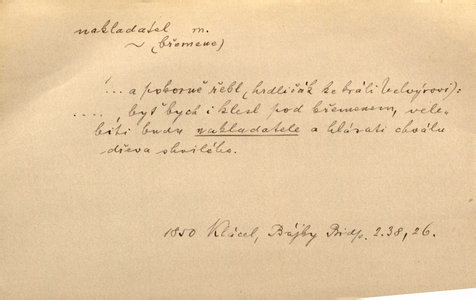 nakladatel m.
~ (břemene)
... a pokorně řekl (hrdličák ke králi
.... byť bych i klesl pod břemenem, vele-
biti budu nakladatele a hlásati chválu
dřeva shnilého.
1850 Klácel, Bájky Bidp. 2.38, 26.